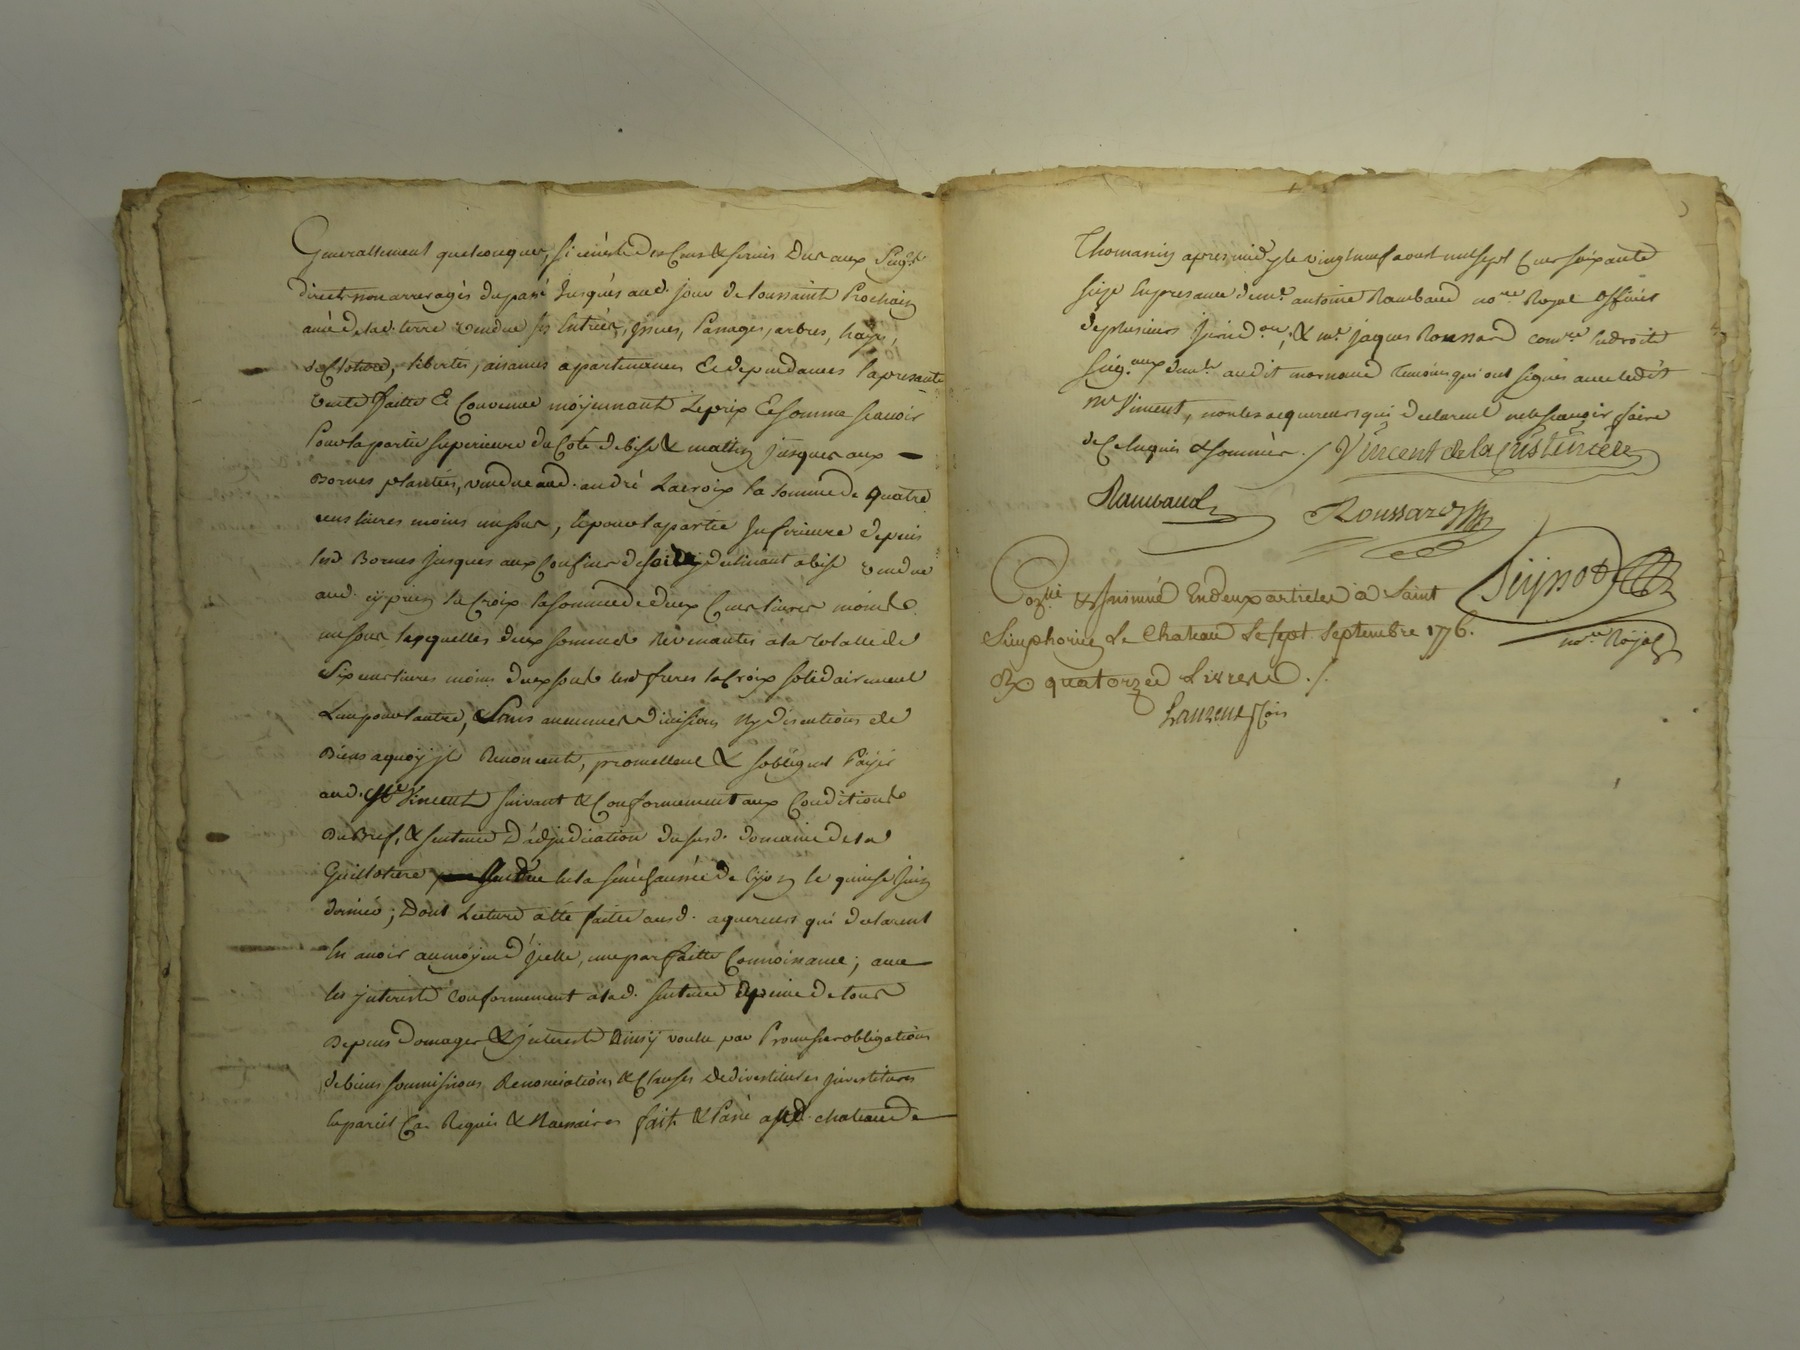 Generallement quelconques, si ce n'est des Cens & servis Dus aux Seigrs
directs non arreragés du passé jusques aud. jour de toussaint Prochain
avec de lad. terre vendue ses Entrées, issues, Passages, arbres, hayes,
de Cloture, libertés, aisances apartenances Et dependances la presante
vente faitte & Convenue moÿennant Le prix Et somme scavoir
Pour la partie superieure du Coté de bise & matin jusques aux
Bornes plantées, vendue aud. andré Lacroix la somme de quatre
cens livres moins un sour, & pour la partie Inferieure depuis
lesd Bornes jusques aux Confins de vendue
aud. La Croix la somme de deux Cens livres moins
un sour lesquelles deux sommes Revenantes a la totalle de
Six cens livres moins deux sous lesd freres la Croix solidairement
L'un pour l'autre, Sans aucunes divisions Ny discutions de
Biens a quoÿ ils Renoncent, promettent & s'obligent Païer
aud. Me Vincent suivant & Conformement aux Conditions
Du Bref, & sentence D'adjudication du susd. domaine de la
Guillotiere Rendue en la sénéchaussée de lÿon le quinse Juin
dernier; Dont Lecture a été faitte ausd. aquereurs qui declarent
En avoir au moÿen d'jcelle, une parfaitte Connoissance; avec
les jnterests conformement a lad. sentence a peine de tous
Depens domages & jnterests Ainsÿ voulu par Promesses obligations
de biens soumissions, Renonciations & Clauses de divestitures jnvestitures
En pareil Cas Requis & Necessaires fait & Passé aud. chateau de
Thomassin apres midy le vingt neuf aoust mil sept Cens soixante
seize En presance de me. antoine Rambaud nore Royal officier
de plusieurs Jurid.on, & mr. jaques Roussard comre En droits
seig.aux demt. audit mornand temoins qui ont signés avec ledit
Me Vincent, non les acquereurs qui declarent ne le scavoir faire
de Ce Enquis & sommés. / Vincent de la
Rambaud Roussard
Con.lé & Insinué En deux articles à Saint
Simphorien Le Chateau le sept Septembre 1776.
Rx quatorze Livres ./.
nore Royal